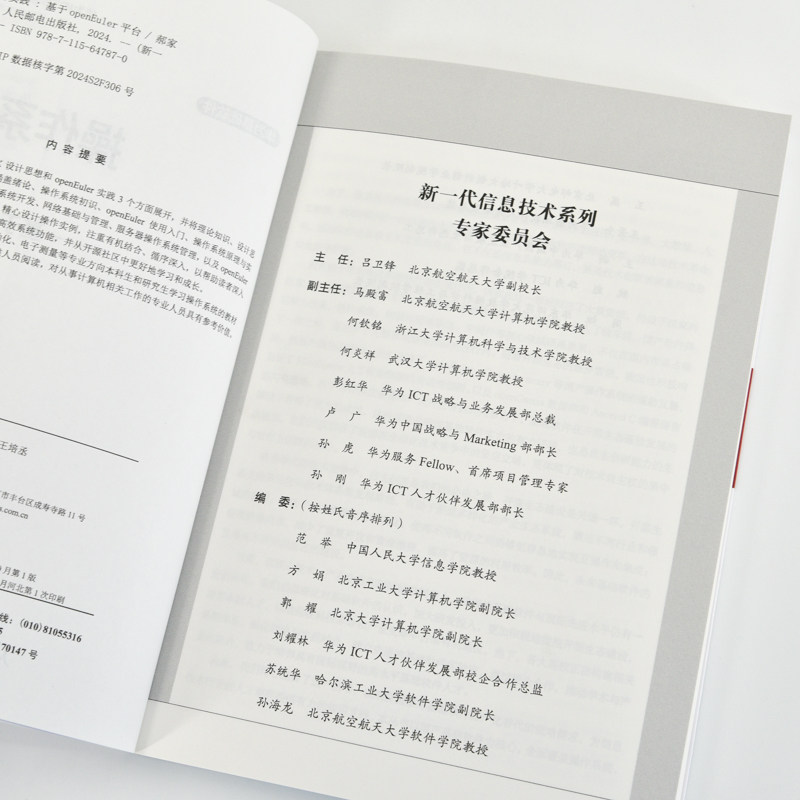 实践：基于openEuler平台 / 郝家
人民邮电出版社，2024. —（新一
ISBN 978-7-115-64787-0
IP 数据核字第 2024S2F306 号
内容提要
设计思想和 openEuler 实践 3 个方面展开，并将理论知识、设计思
盖绪论、操作系统初识、openEuler 使用入门、操作系统原理与实
系统开发、网络基础与管理、服务器操作系统管理，以及 openEuler
精心设计操作实例，注重有机结合、循序深入，以帮助读者深入
高效系统功能，并从开源社区中更好地学习和成长。
化、电子测量等专业方向本科生和研究生学习操作系统的教材
人员阅读，对从事计算机相关工作的专业人员具有参考价值。
王培丞
市丰台区成寿寺路 11 号
s.com.cn
月第 1 版
月河北第 1 次印刷
线：(010)81055316
70147 号
新一代信息技术系列
专家委员会
主 任：吕卫锋 北京航空航天大学副校长
副主任：马殿富 北京航空航天大学计算机学院教授
何钦铭 浙江大学计算机科学与技术学院教授
何炎祥 武汉大学计算机学院教授
彭红华 华为 ICT 战略与业务发展部总裁
卢 广 华为中国战略与 Marketing 部部长
孙 虎 华为服务 Fellow、首席项目管理专家
孙 刚 华为 ICT 人才伙伴发展部部长
编 委：（按姓氏音序排列）
范 举 中国人民大学信息学院教授
方 娟 北京工业大学计算机学院副院长
郭 耀 北京大学计算机学院副院长
刘耀林 华为 ICT 人才伙伴发展部校企合作总监
苏统华 哈尔滨工业大学软件学院副院长
孙海龙 北京航空航天大学软件学院教授